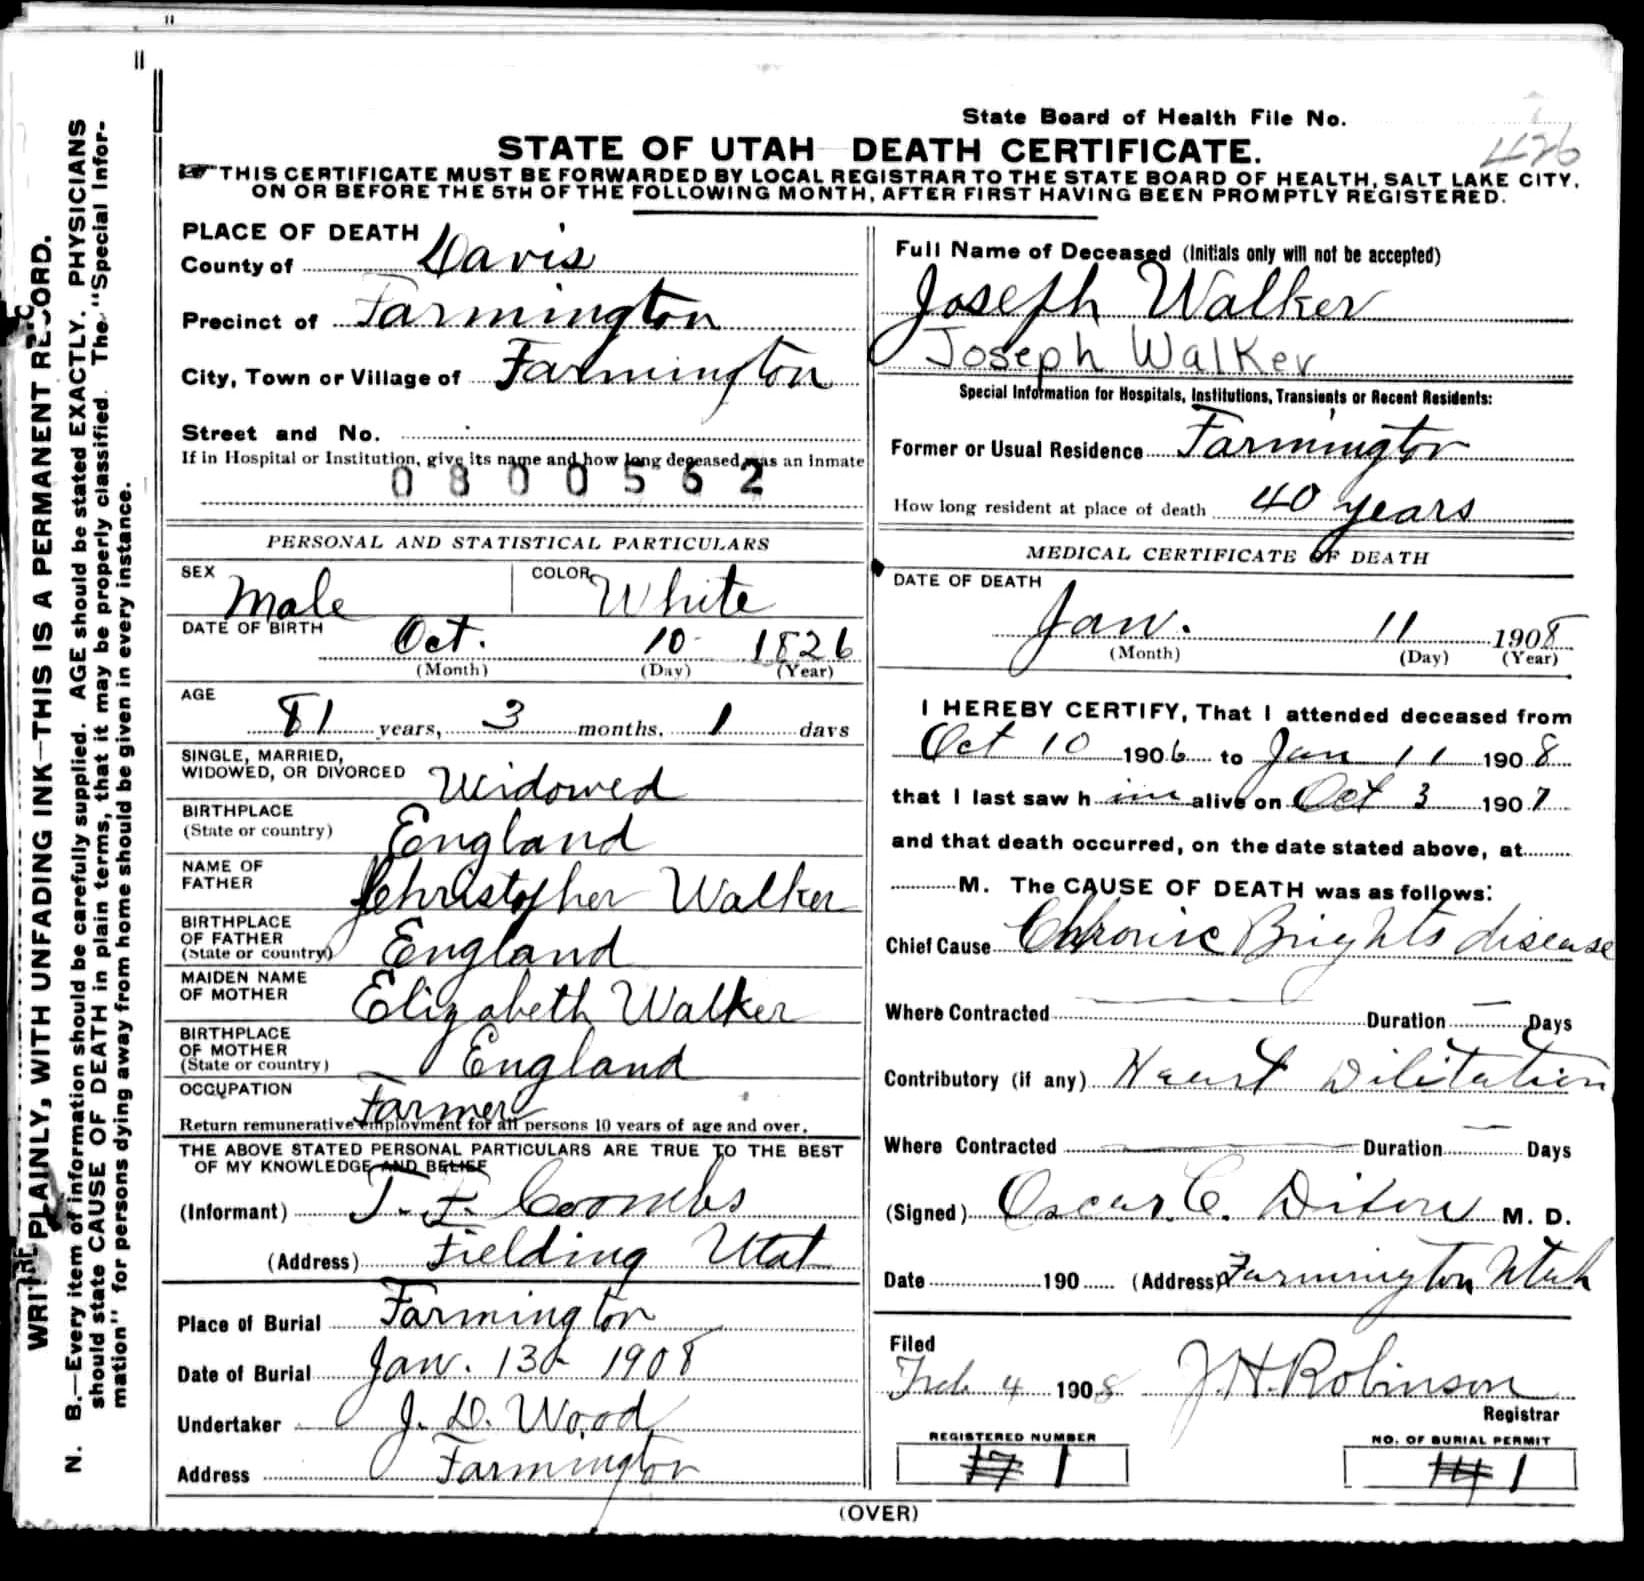 State Board of Health File No.
426
STATE OF UTAH DEATH CERTIFICATE.
THIS CERTIFICATE MUST BE FORWARDED BY LOCAL REGISTRAR TO THE STATE BOARD OF HEALTH, SALT LAKE CITY,
ON OR BEFORE THE 5TH OF THE FOLLOWING MONTH, AFTER FIRST HAVING BEEN PROMPTLY REGISTERED.
WRITE PLAINLY, WITH UNFADING INK—THIS IS A PERMANENT RECORD.
N. B.—Every item of information should be carefully supplied. AGE should be stated EXACTLY. PHYSICIANS
should state CAUSE OF DEATH in plain terms, that it may be properly classified. The "Special Infor-
mation" for persons dying away from home should be given in every instance.
PLACE OF DEATH
County of Davis
Precinct of Farmington
City, Town or Village of Farmington
Street and No.
If in Hospital or Institution, give its name and how long deceased was an inmate
0800562
PERSONAL AND STATISTICAL PARTICULARS
SEX Male COLOR White
DATE OF BIRTH Oct. 10 1826
(Month) (Day) (Year)
AGE
81 years, 3 months, 1 days
SINGLE, MARRIED,
WIDOWED, OR DIVORCED Widowed
BIRTHPLACE
(State or country) England
NAME OF
FATHER Christopher Walker
BIRTHPLACE
OF FATHER
(State or country) England
MAIDEN NAME
OF MOTHER Elizabeth Walker
BIRTHPLACE
OF MOTHER
(State or country) England
OCCUPATION
Farmer
Return remunerative employment for all persons 10 years of age and over.
THE ABOVE STATED PERSONAL PARTICULARS ARE TRUE TO THE BEST
OF MY KNOWLEDGE AND BELIEF
(Informant) T. F. Coombs
(Address) Fielding Utah
Place of Burial Farmington
Date of Burial Jan. 13 1908
Undertaker J. D. Wood
Address Farmington
Full Name of Deceased (Initials only will not be accepted)
Joseph Walker
Joseph Walker
Special Information for Hospitals, Institutions, Transients or Recent Residents:
Former or Usual Residence Farmington
How long resident at place of death 40 years
MEDICAL CERTIFICATE OF DEATH
DATE OF DEATH
Jan. 11 1908
(Month) (Day) (Year)
I HEREBY CERTIFY, That I attended deceased from
Oct 10 1906 to Jan 11 1908
that I last saw him alive on Oct 3 1907
and that death occurred, on the date stated above, at
M. The CAUSE OF DEATH was as follows:
Chief Cause Chronic Brights disease
Where Contracted — Duration — Days
Contributory (if any) Heart Dilitation
Where Contracted — Duration — Days
(Signed) Oscar C. Dixon M. D.
Date 190 (Address) Farmington Utah
Filed
Feb 4 1908 J. H. Robinson
Registrar
REGISTERED NUMBER NO. OF BURIAL PERMIT
1 1
(OVER)